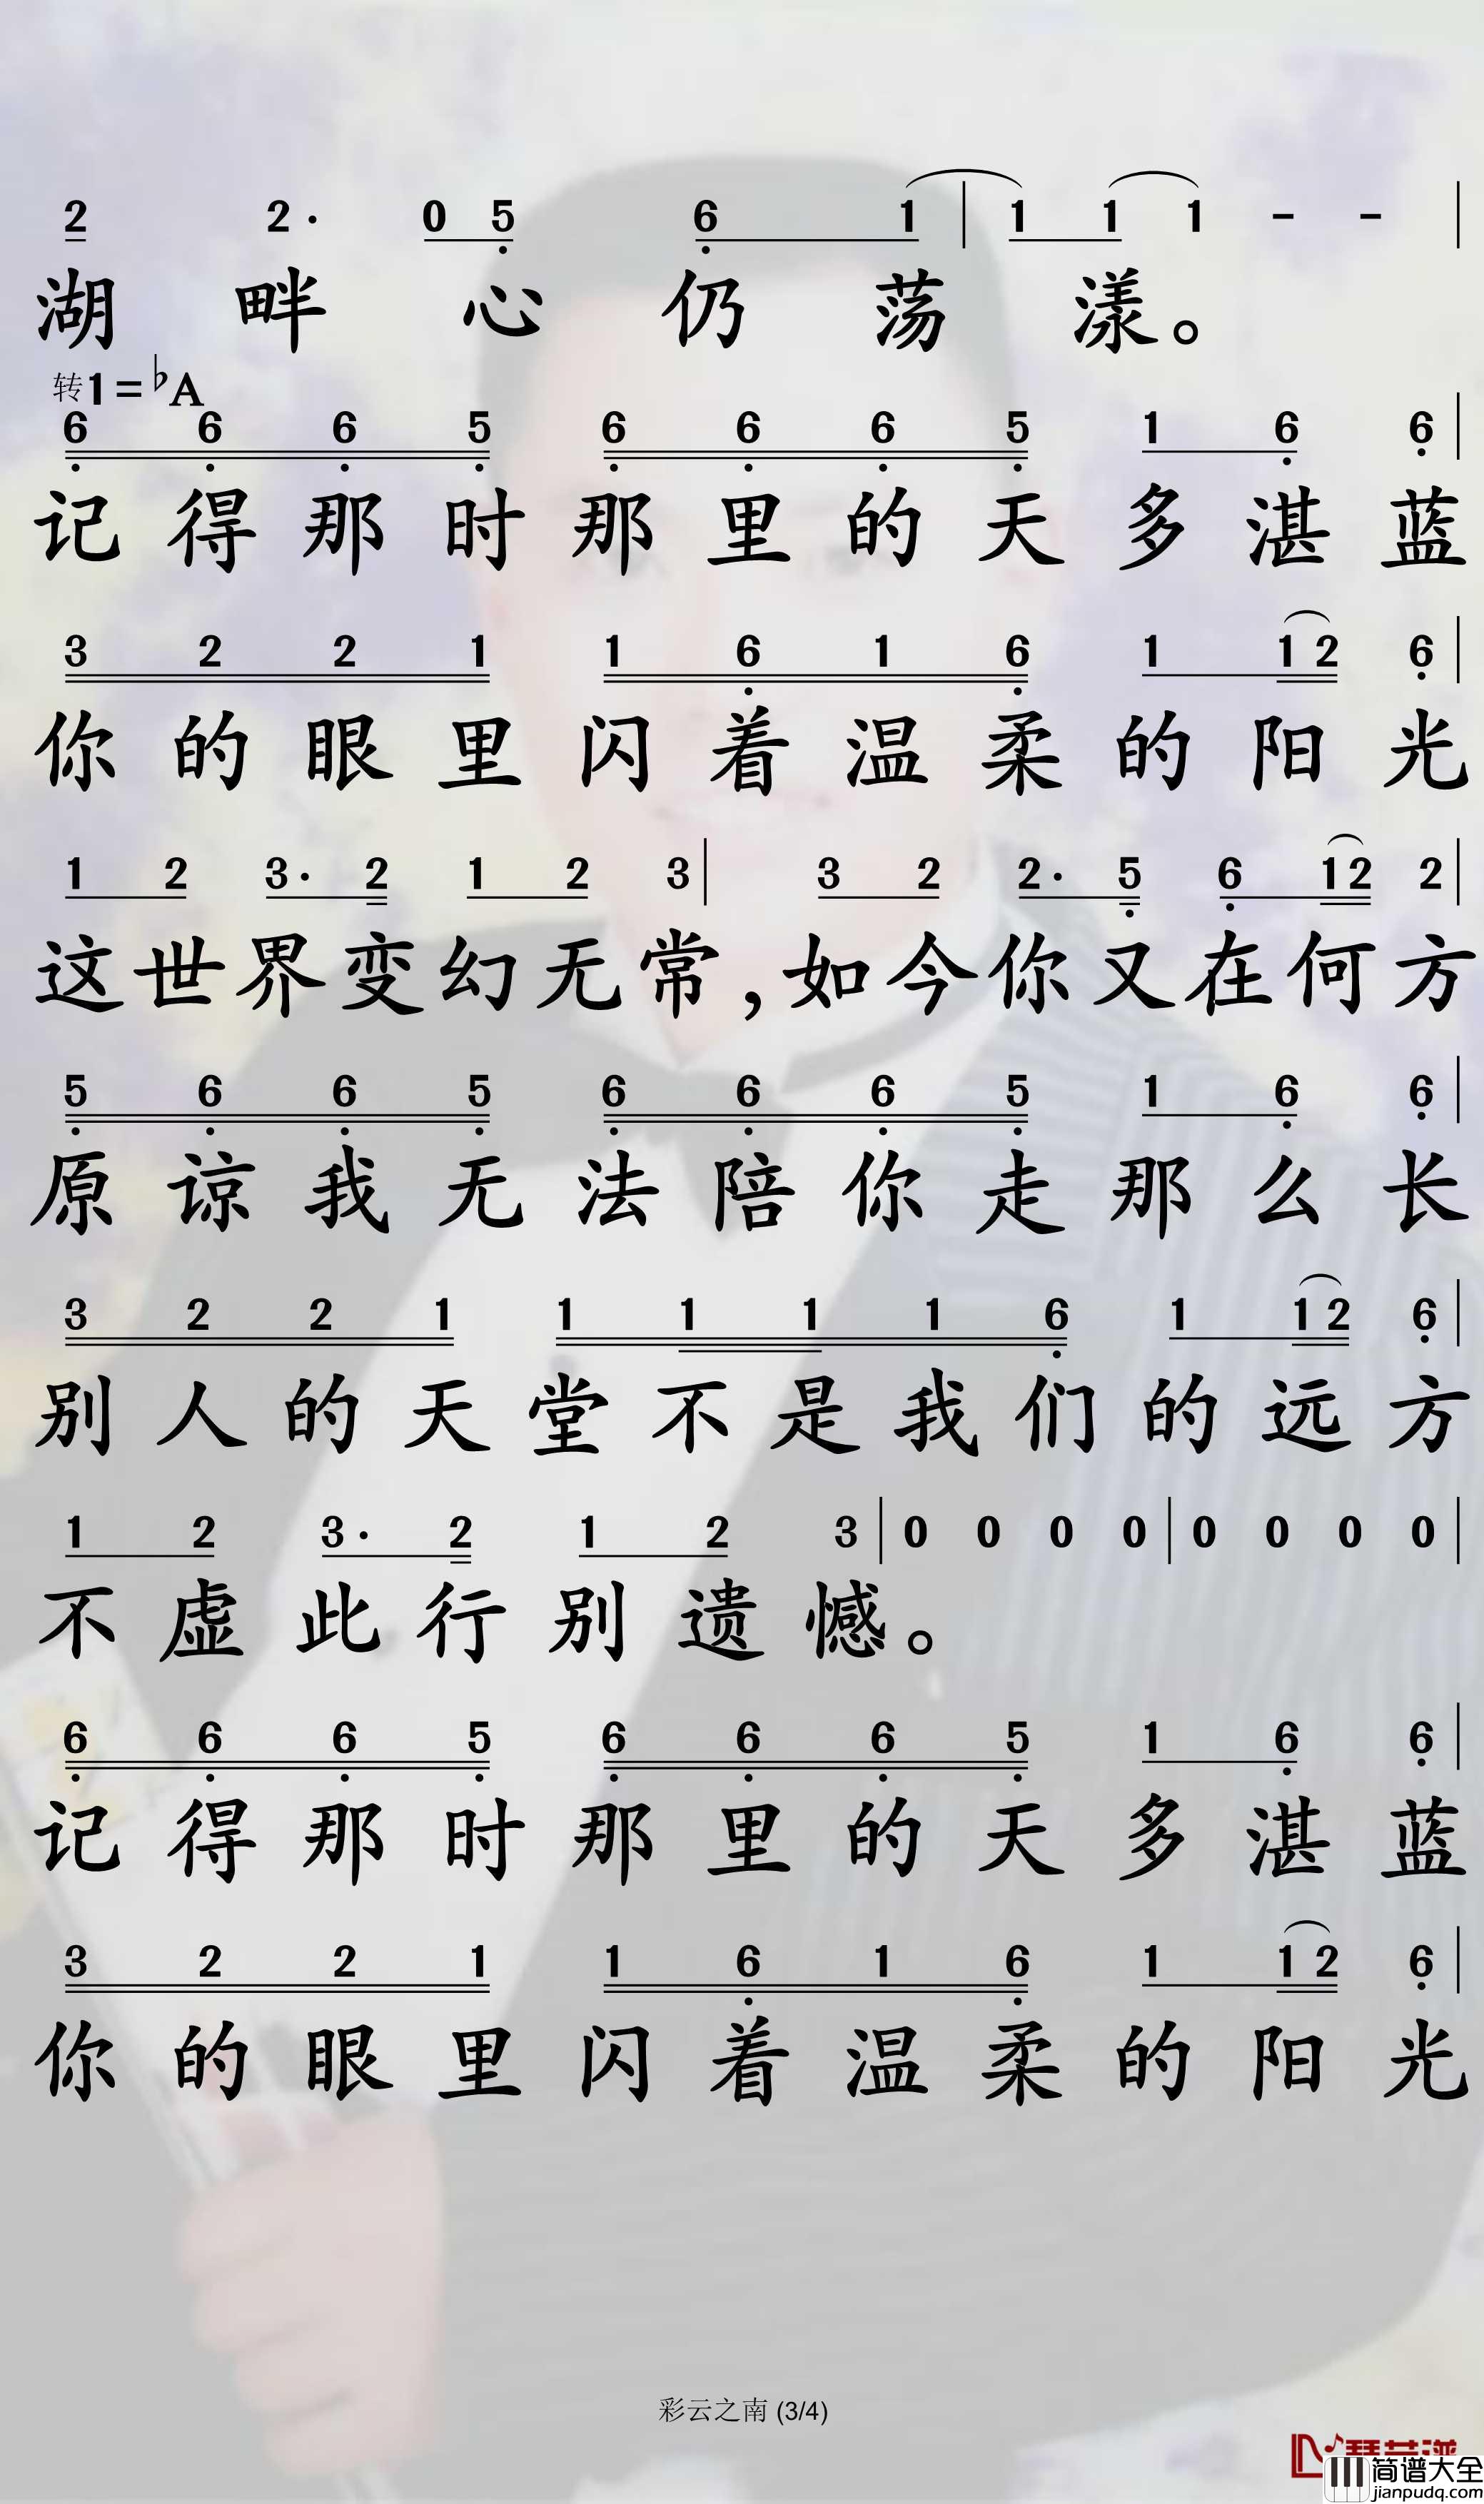 2 2· 0 5 6 1 | 1 1 1 - - |
湖畔心仍荡漾。
转1=♭A
6 6 6 5 6 6 6 5 1 6 6 |
记得那时那里的天多湛蓝
3 2 2 1 1 6 1 6 1 1 2 6 |
你的眼里闪着温柔的阳光
1 2 3· 2 1 2 3 | 3 2 2· 5 6 1 2 2 |
这世界变幻无常,如今你又在何方
5 6 6 5 6 6 6 5 1 6 6 |
原谅我无法陪你走那么长
3 2 2 1 1 1 1 1 6 1 1 2 6 |
别人的天堂不是我们的远方
1 2 3· 2 1 2 3 | 0 0 0 0 | 0 0 0 0 |
不虚此行别遗憾。
6 6 6 5 6 6 6 5 1 6 6 |
记得那时那里的天多湛蓝
3 2 2 1 1 6 1 6 1 1 2 6 |
你的眼里闪着温柔的阳光
彩云之南 (3/4)
简谱大全
jianpudq.com